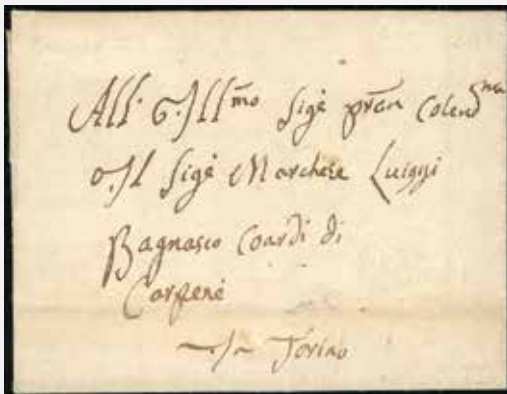 All. Ill.mo Sig.e pron Colend.mo
Il Sig.e Marchese Luiggi
Bagnasco Coardi di
Carpenè
Torino